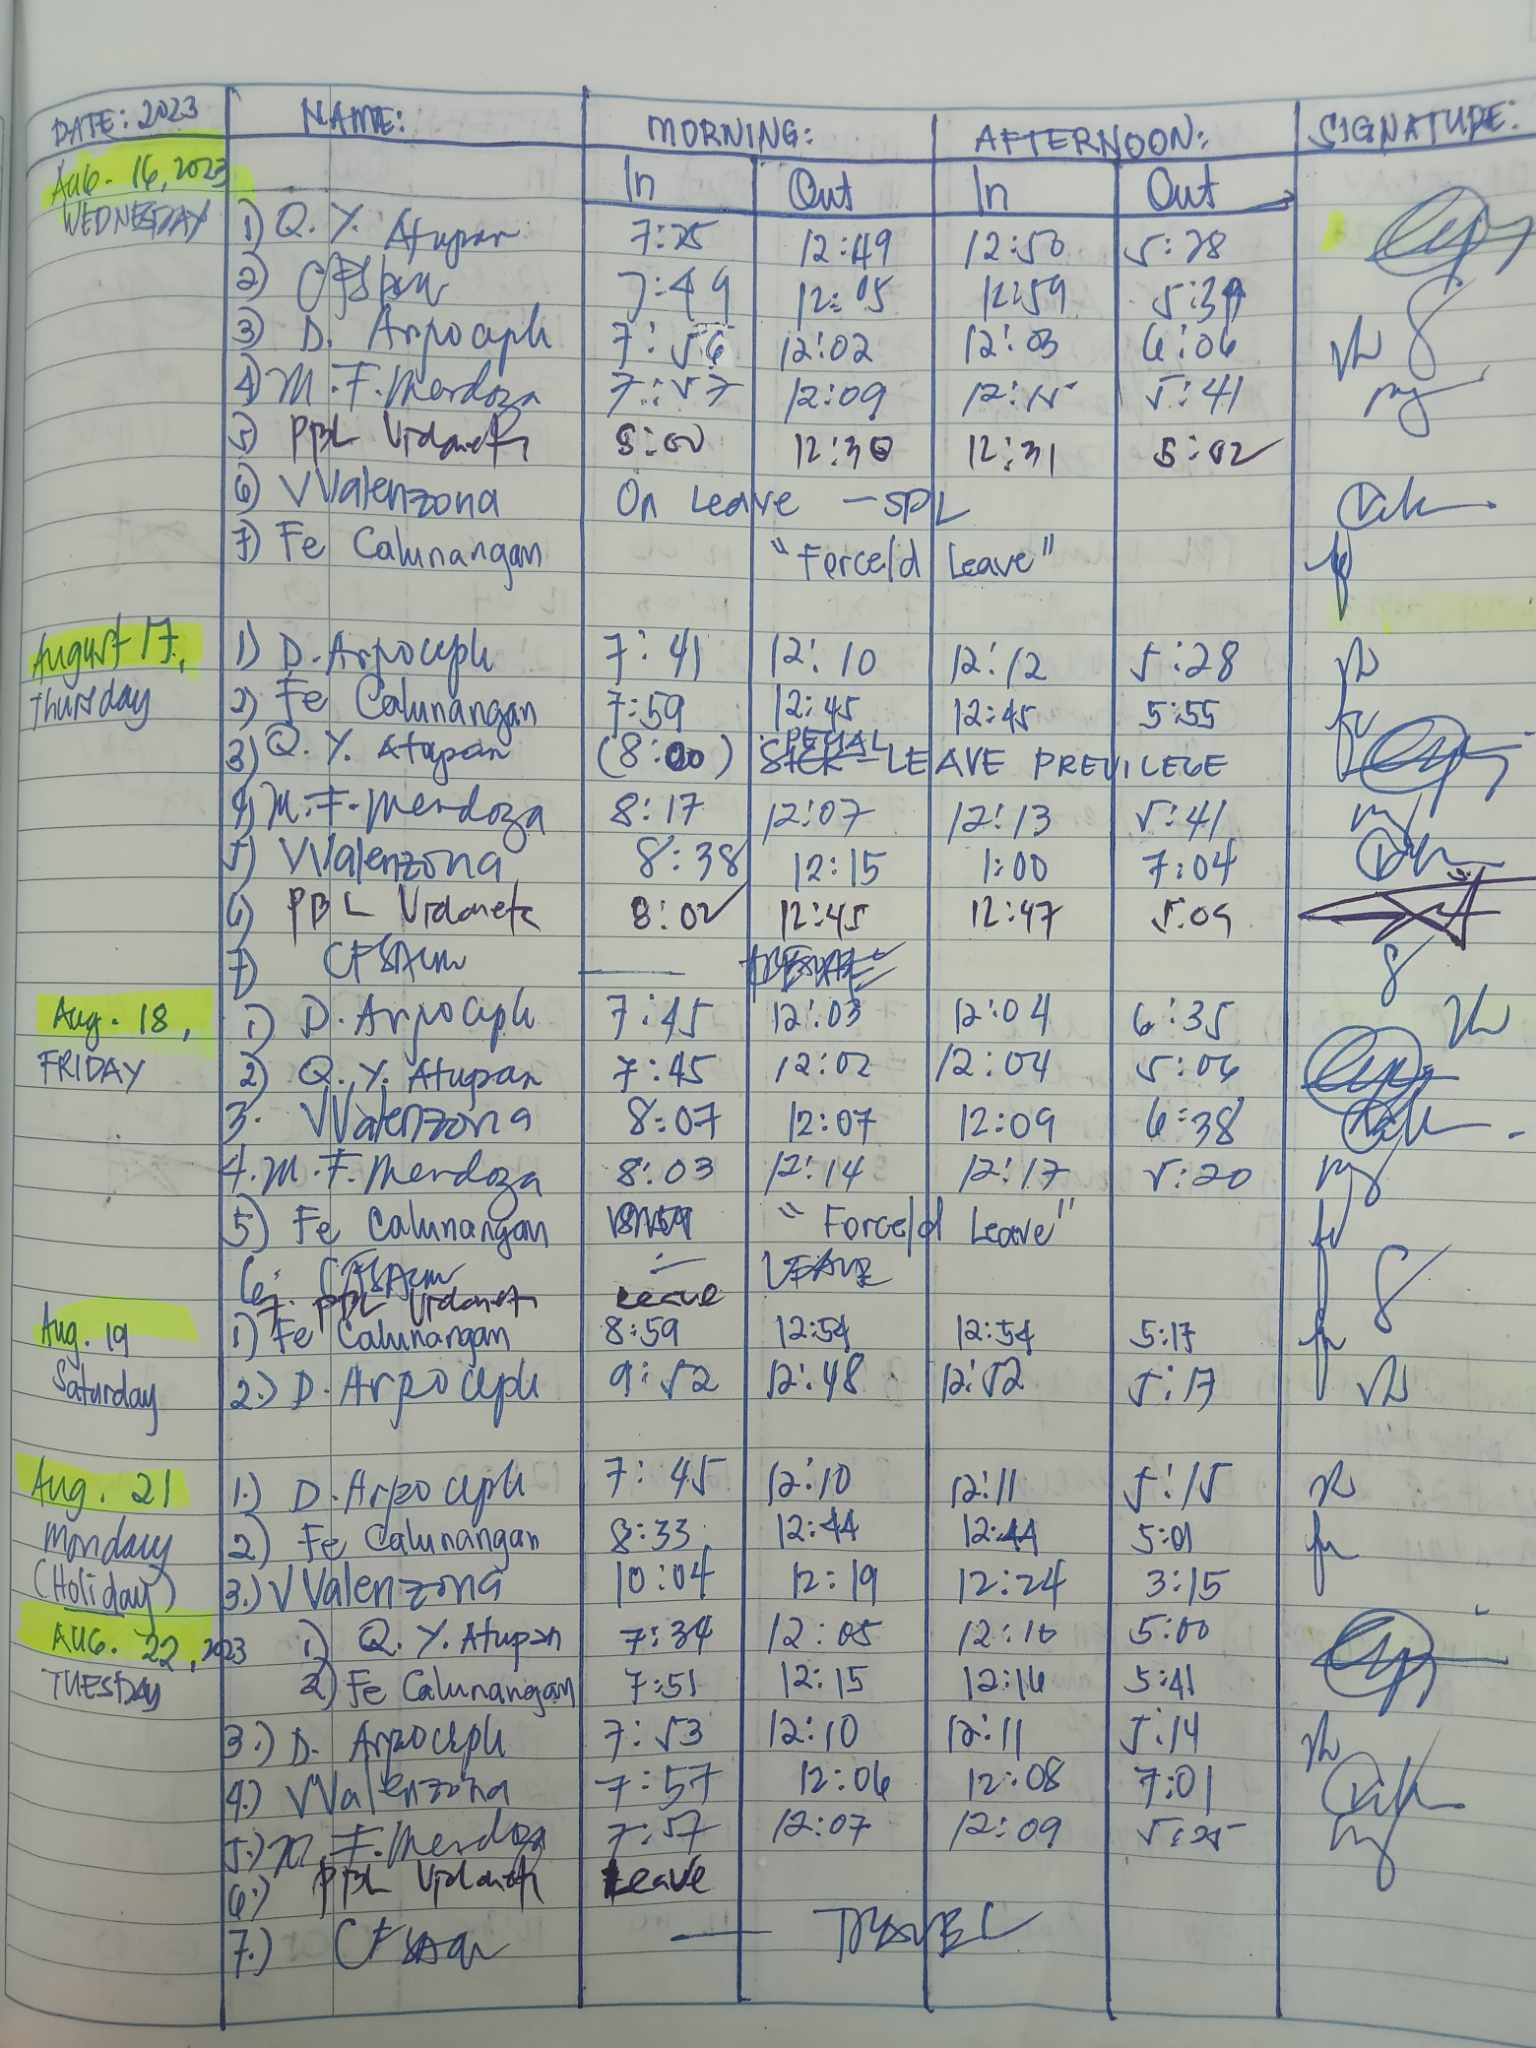 DATE: 2023 NAME: MORNING: AFTERNOON: SIGNATURE:
Aug. 16, 2023 In Out In Out
WEDNESDAY 1) Q. Y. Atupan 7:25 12:49 12:50 5:28
2) 7:49 12:05 12:59 5:39
3) D. Arpoceph 7:56 12:02 12:03 6:06
4) M. F. Mendoza 7:57 12:09 12:15 5:41
5) PBL Vidoneta 8:00 12:30 12:31 5:02
6) VValenzona On Leave - SPL
7) Fe Calunangan "Force/d Leave"
August 17, 1) D. Arpoceph 7:41 12:10 12:12 5:28
Thursday 2) Fe Calunangan 7:59 12:45 12:45 5:55
3) Q. Y. Atupan (8:00) LEAVE PREVILEGE
4) M. F. Mendoza 8:17 12:07 12:13 5:41
5) VValenzona 8:38 12:15 1:00 7:04
6) PBL Vidoneta 8:02 12:45 12:47 5:09
7)
Aug. 18, 1) D. Arpoceph 7:45 12:03 12:04 6:35
FRIDAY 2) Q. Y. Atupan 7:45 12:02 12:04 5:06
3. VValenzona 8:07 12:07 12:09 6:38
4. M. F. Mendoza 8:03 12:14 12:17 5:20
5) Fe Calunangan "Force/d Leave"
6. LEAVE
7. PBL Vidoneta Leave
Aug. 19 1) Fe Calunangan 8:59 12:54 12:54 5:17
Saturday 2.) D. Arpoceph 9:52 12:48 12:52 5:17
Aug. 21 1.) D. Arpoceph 7:45 12:10 12:11 5:15
Monday 2) Fe Calunangan 8:33 12:44 12:44 5:01
(Holiday) 3.) VValenzona 10:04 12:19 12:24 3:15
AUG. 22, 2023 1) Q. Y. Atupan 7:34 12:05 12:10 5:00
TUESDAY 2) Fe Calunangan 7:51 12:15 12:16 5:41
3.) D. Arpoceph 7:53 12:10 12:11 5:14
4.) VValenzona 7:57 12:06 12:08 7:01
5.) M. F. Mendoza 7:57 12:07 12:09 5:25
6.) PBL Vidoneta Leave
7.) TRAVEL